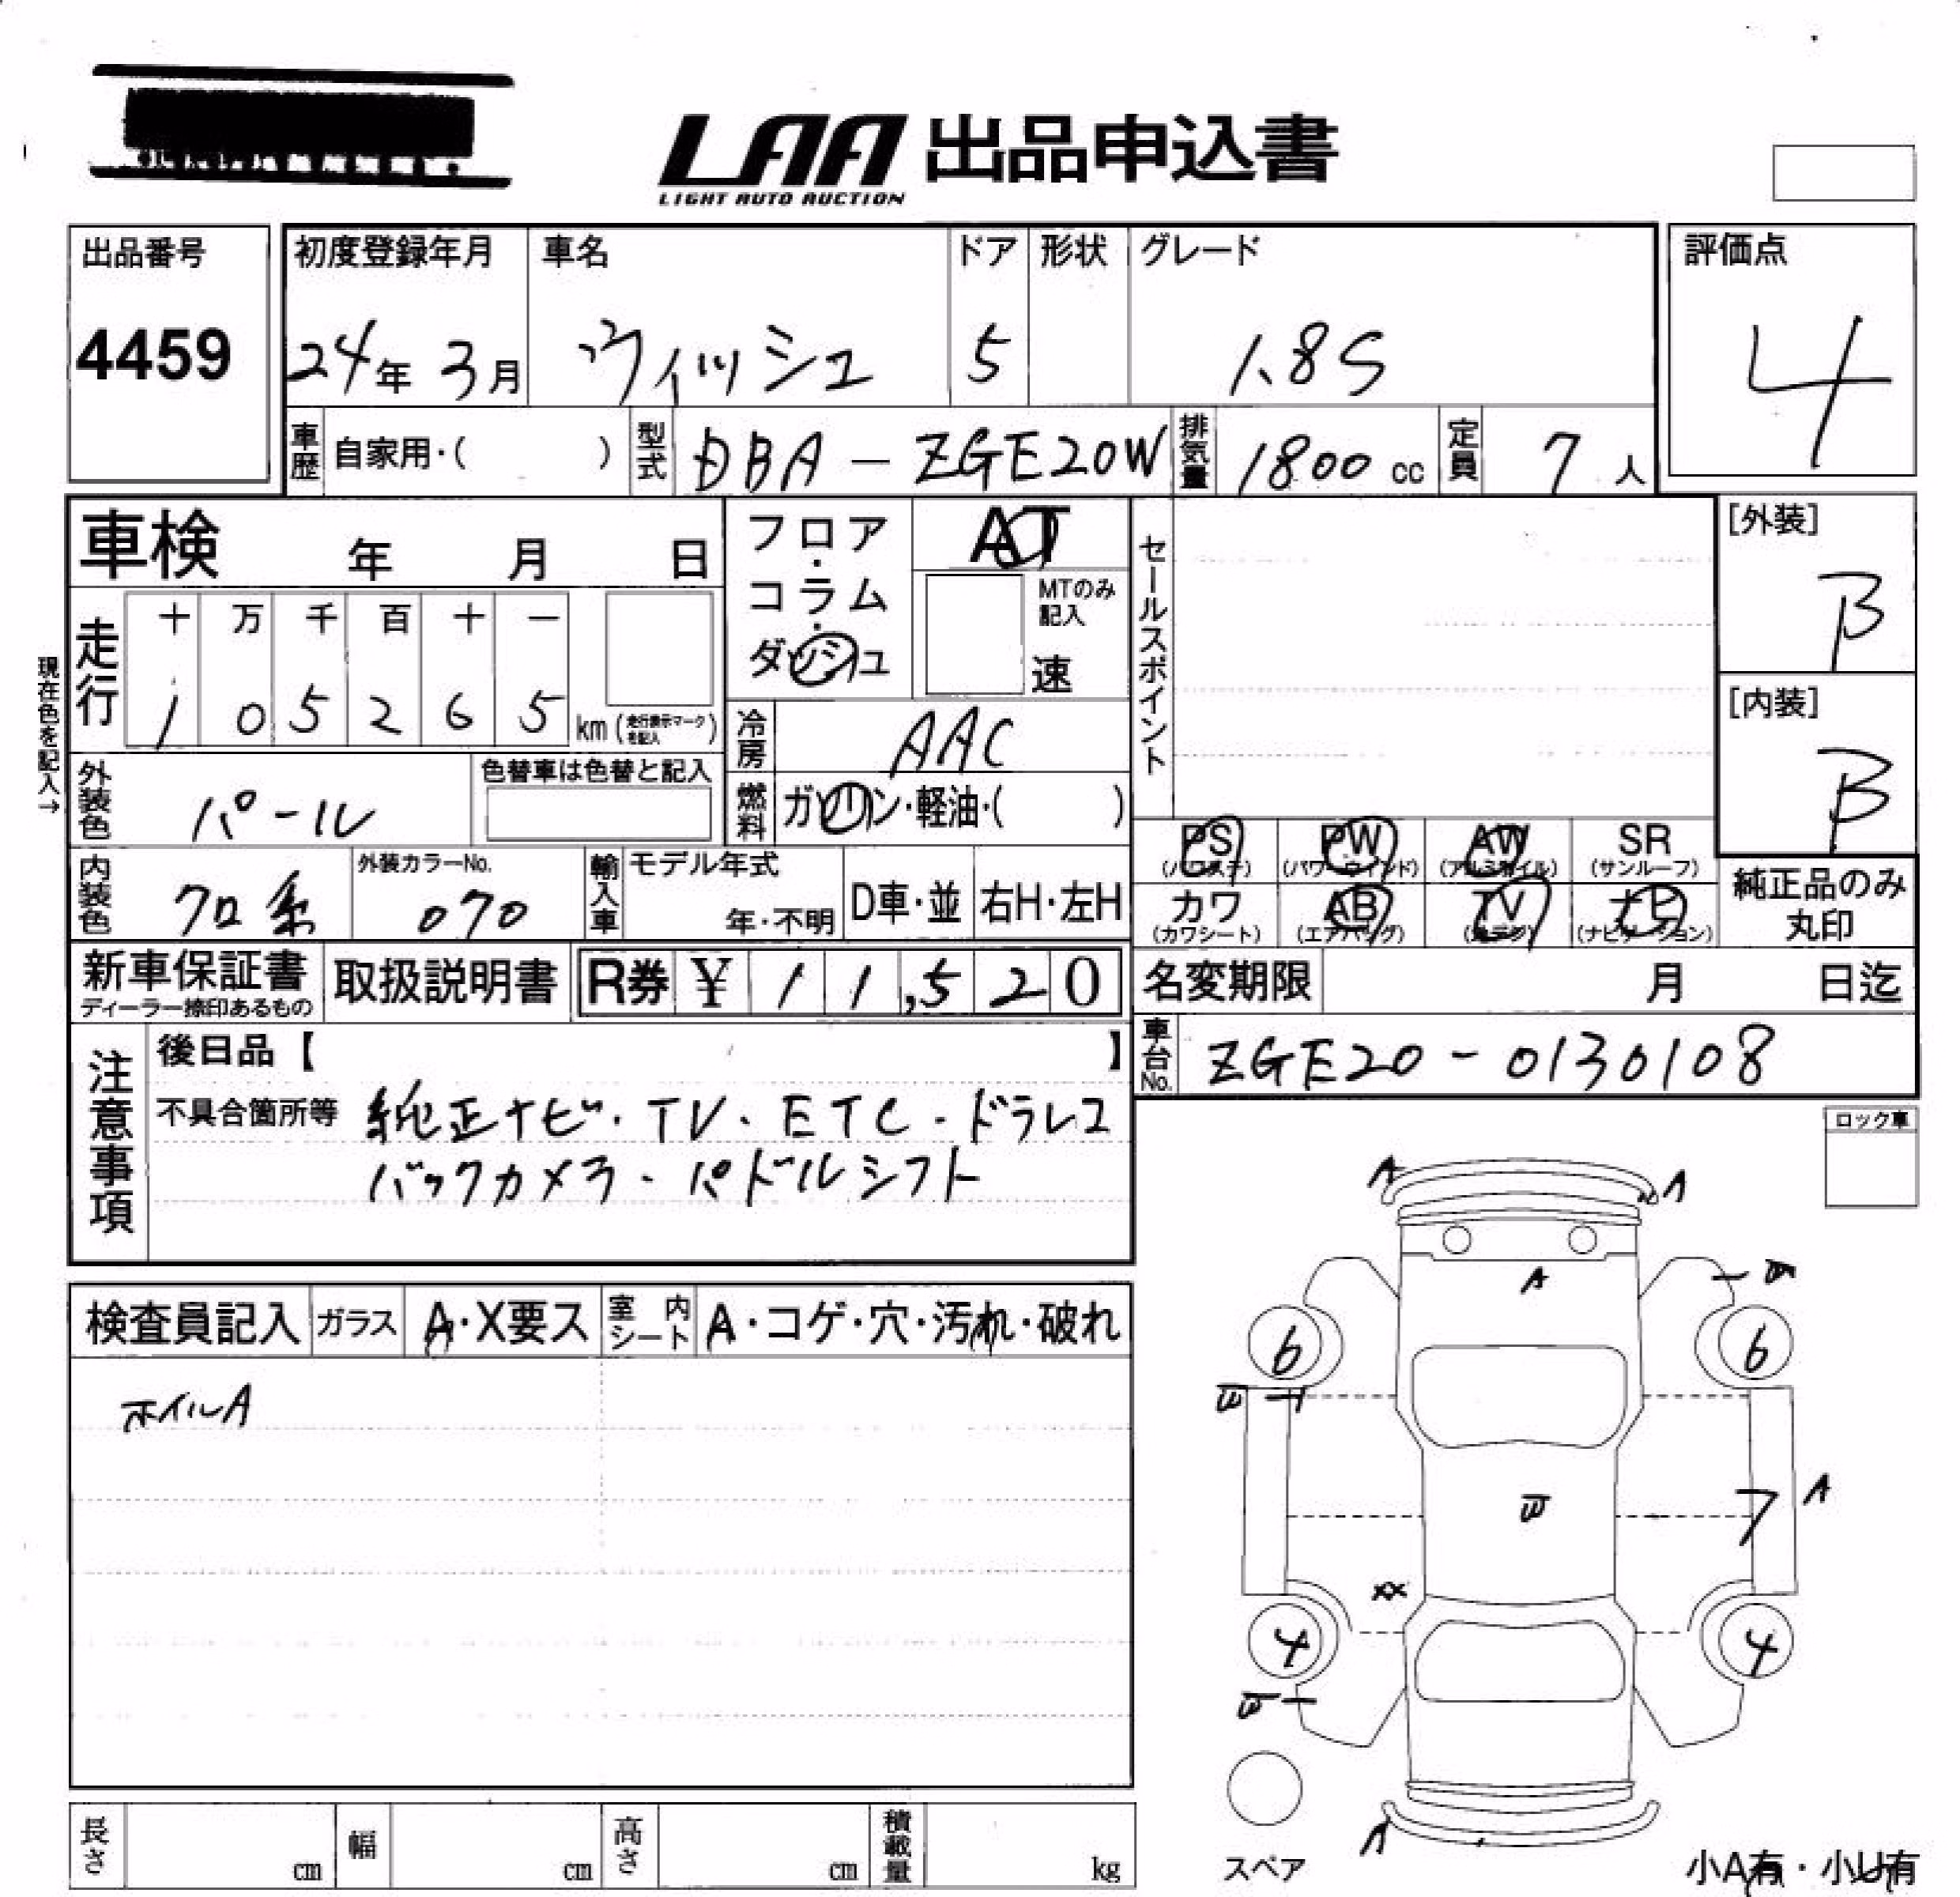 LAA 出品申込書
LIGHT AUTO AUCTION
出品番号
4459
初度登録年月
24年 3月
車名
ヴィッシュ
ドア
5
形状
グレード
1.8S
評価点
4
車歴 自家用・( )
型式 DBA-ZGE20W
排気量 1800 cc
定員 7 人
車検 年 月 日
フロア・コラム・ダッシュ
AT
MTのみ記入
速
セールスポイント
[外装]
B
[内装]
B
現在色を記入→
走行
十 万 千 百 十 一
1 0 5 2 6 5 km (走行表示マークを記入)
冷房 AAC
外装色 パール
色替車は色替と記入
燃料 ガソリン・軽油・( )
PS (パワステ)
PW (パワーウィンド)
AW (アルミホイル)
SR (サンルーフ)
カワ (カワシート)
AB (エアバッグ)
TV (地デジ)
ナビ (ナビゲーション)
純正品のみ丸印
内装色 クロ系
外装カラーNo. 070
輸入車 モデル年式
年・不明
D車・並
右H・左H
新車保証書
ディーラー捺印あるもの
取扱説明書
R券 ¥ 11,520
名変期限 月 日迄
車台No. ZGE20-0130108
注意事項
後日品【 】
不具合箇所等 純正ナビ・TV・ETC・ドラレコ
バックカメラ・パドルシフト
ロック車
検査員記入 ガラス A・X要ス 室内シート A・コゲ・穴・汚れ・破れ
ホイルA
A
A
A
6
6
A
7
XX
4
4
A
スペア
小A有・小U有
長さ cm
幅 cm
高さ cm
積載量 kg